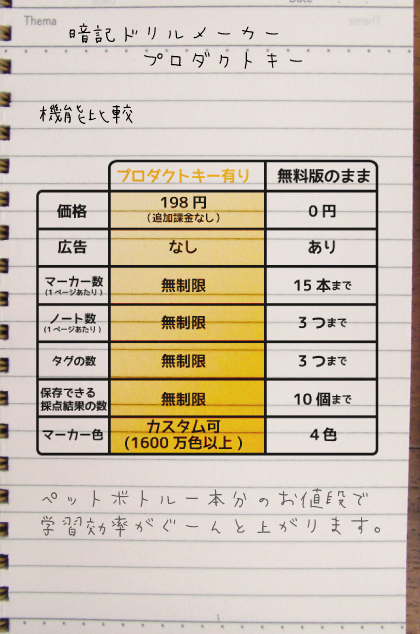 Thema
暗記ドリルメーカー
プロダクトキー
機能比較
プロダクトキー有り 無料版のまま
価格 198円 (追加課金なし) 0円
広告 なし あり
マーカー数 (1ページあたり) 無制限 15本まで
ノート数 (1ページあたり) 無制限 3つまで
タグの数 無制限 3つまで
保存できる採点結果の数 無制限 10個まで
マーカー色 カスタム可 (1600万色以上) 4色
ペットボトル一本分のお値段で
学習効率がぐーんと上がります。
1